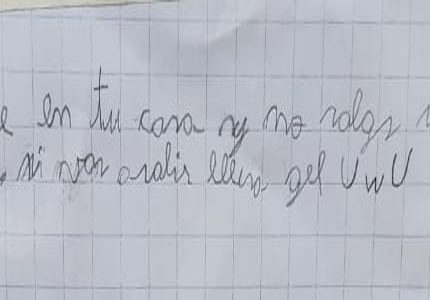 e en tu casa y no salgs
si vas a salir lleva gel UwU